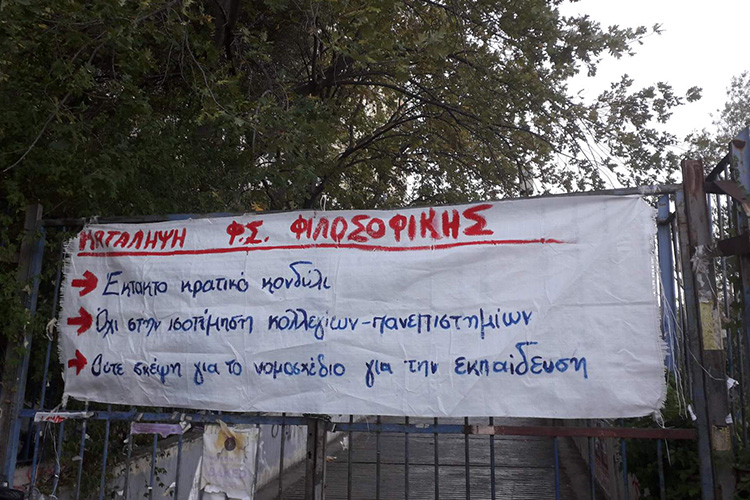 ΚΑΤΑΛΗΨΗ Φ.Σ. ΦΙΛΟΣΟΦΙΚΗΣ
→ Έκτακτο κρατικό κονδύλι
→ Όχι στην ισοτίμηση κολλεγίων-πανεπιστημίων
→ Ούτε σκέψη για το νομοσχέδιο για την εκπαίδευση